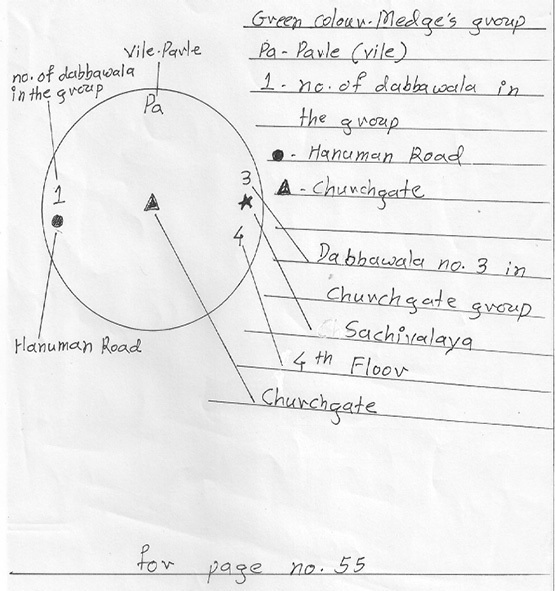 Green colour-Medge's group
Vile-Parle
Pa - Parle (vile)
no. of dabbawala
in the group
1 - no. of dabbawala in
the group
Pa
● - Hanuman Road
▲ - Churchgate
1
3
4
Dabbawala no. 3 in
Churchgate group
Sachivalaya
4th Floor
Churchgate
Hanuman Road
for page no. 55